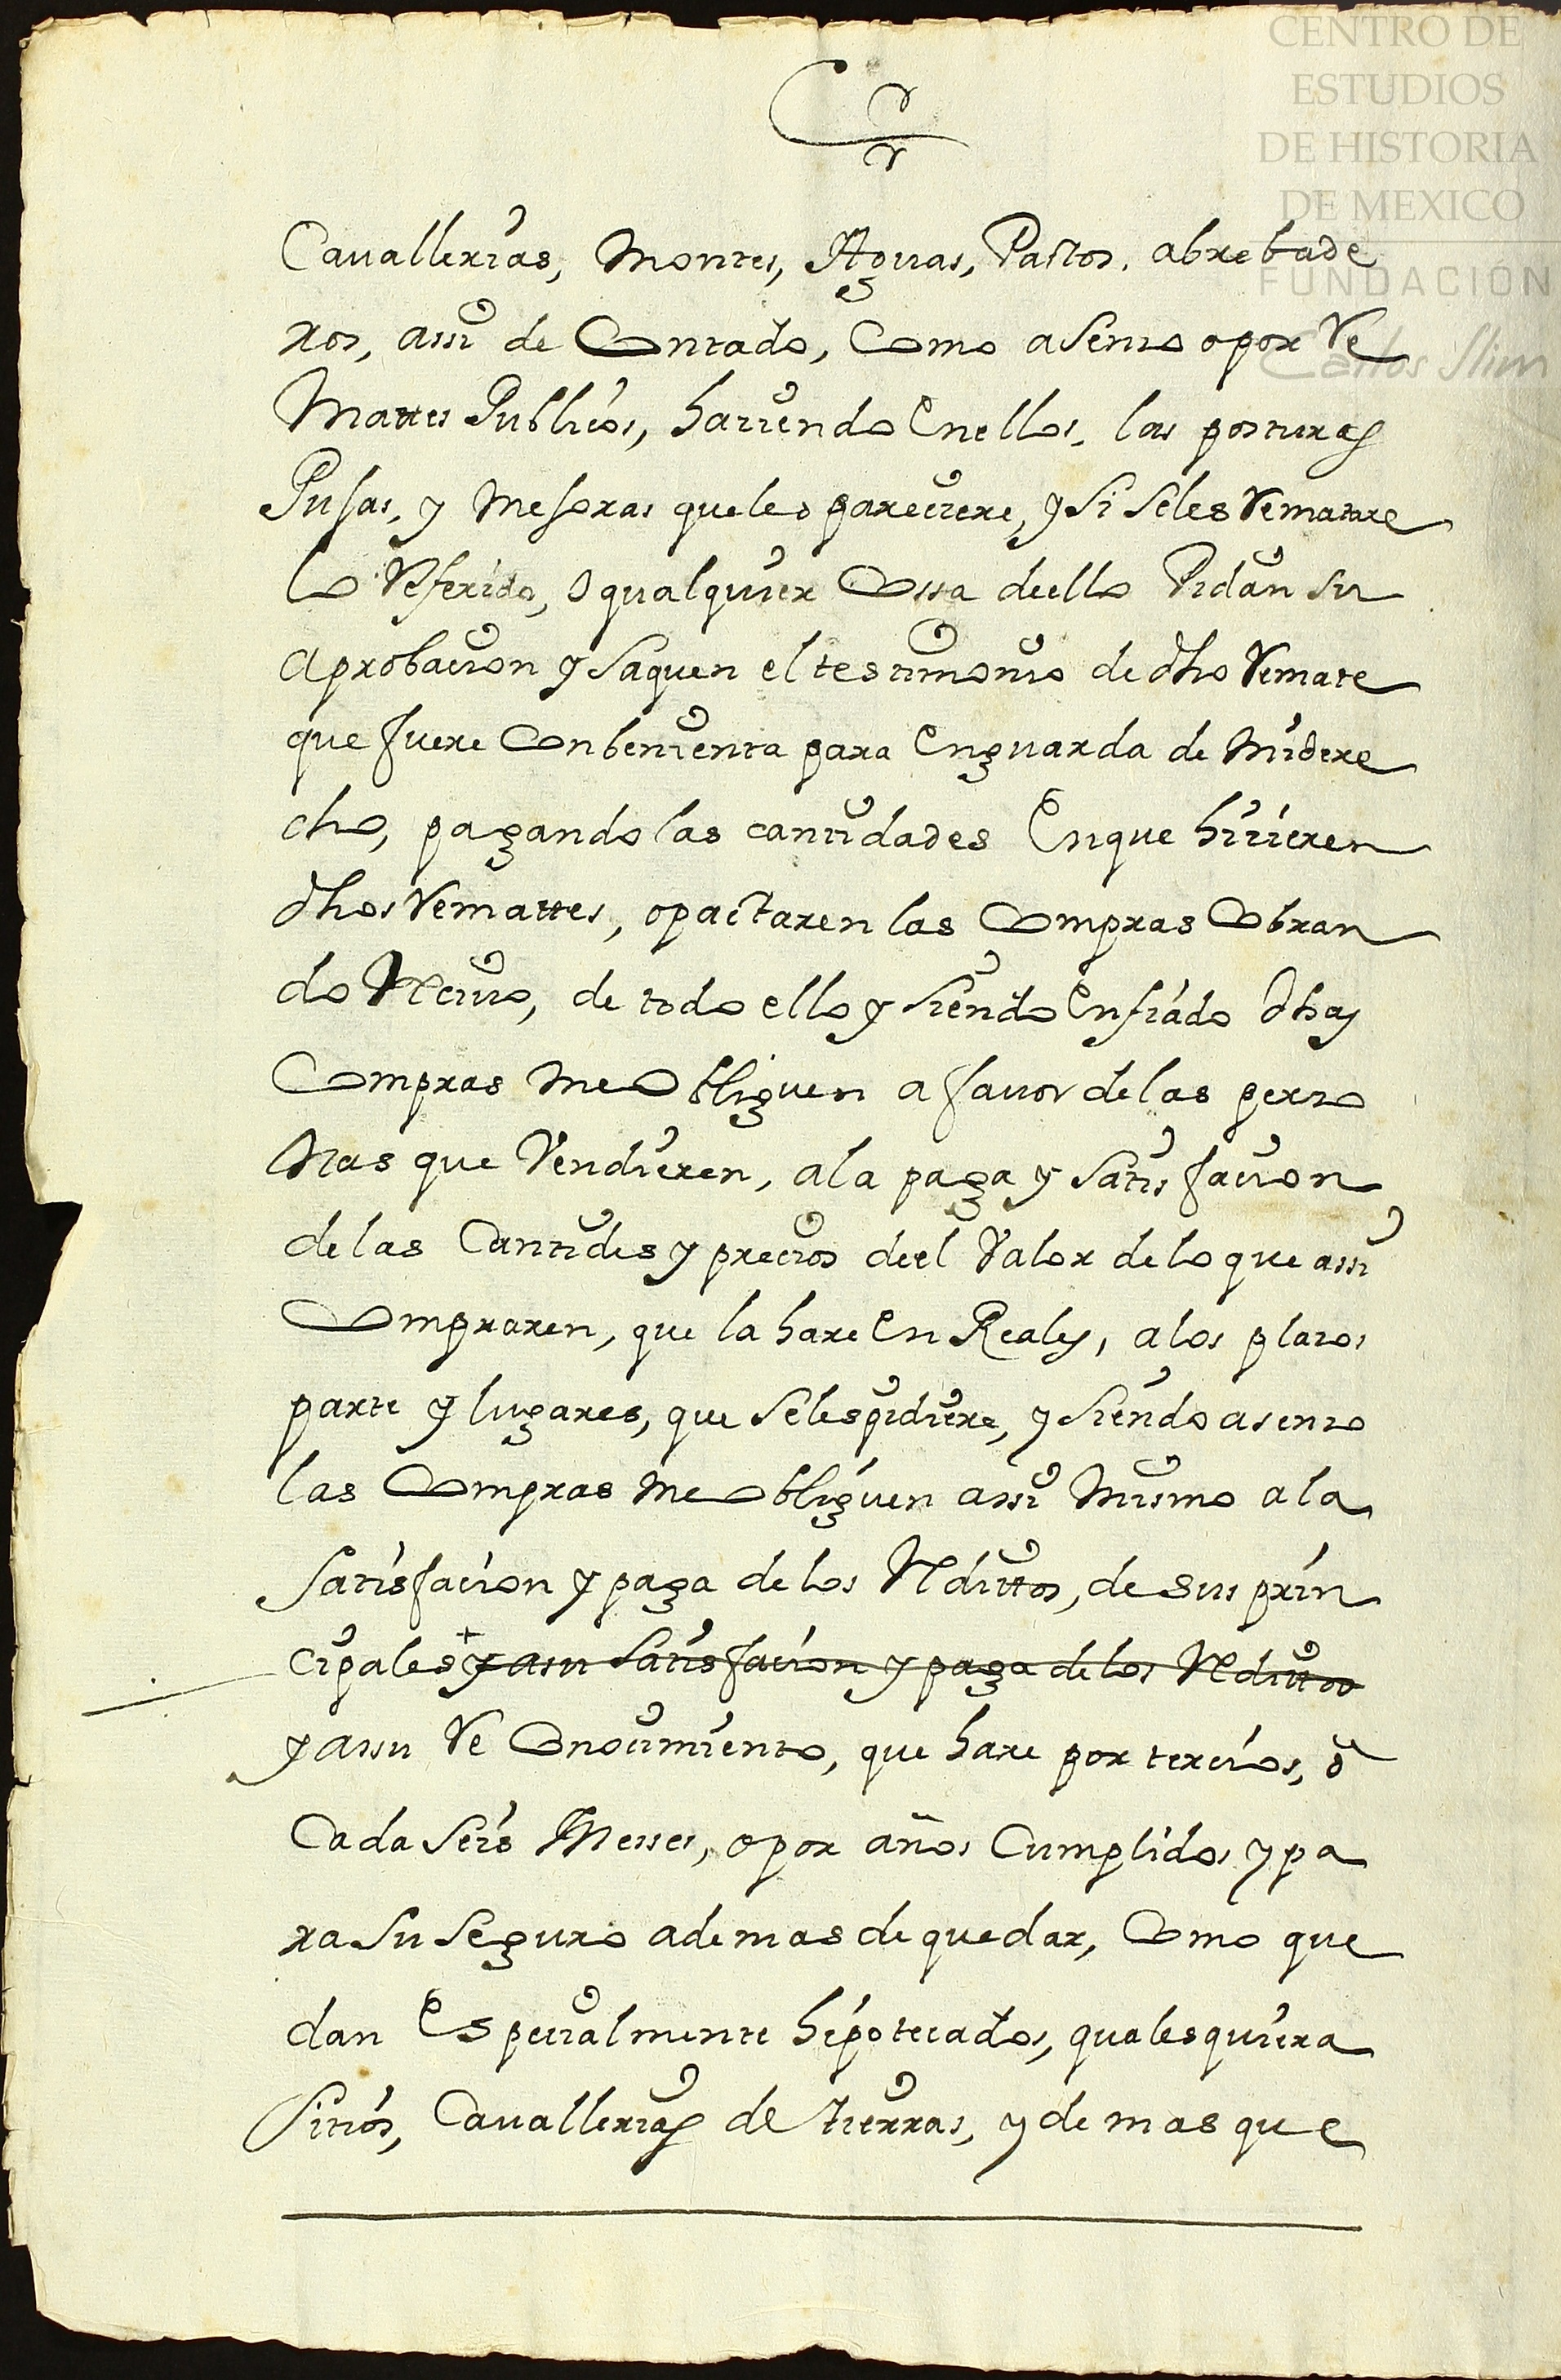 CENTRO DE
ESTUDIOS
DE HISTORIA
DE MEXICO
FUNDACIÓN
Carlos Slim
Cauallerias, Montes, Aguas, Pastos, abrebade
ros, assi de Contado, Como a Senso o por Re
Mattes Publicos, haciendo En ellos, las posturas
Pujas, y Mejoras que les pareciere, y Si Se les Rematare
lo Referido, o qualquier Cossa de ello Pidan su
aprobacion y Saquen el testimonio de dho Remate
que fuere Conbenienta para En guarda de Mi dere
cho, pagando las cantidades En que hicieren
dhos Remattes, o pactaren las Compras Cobran
do Recivo, de todo ello y Siendo En fiado dhas
Compras me Obliguen a fauor de las perzo
Nas que Vendieren, a la paga y Satisfacion
de las Cantides y precios de el Valor de lo que assi
Compraren, que la hare En Reales, a los plazos
parte y lugares, que Se les pidiere, y Siendo a senso
las Compras me obliguen assi Mismo a la
Satisfacion y paga de los Redittos, de sus prin
cipales + y a su Satisfacion y paga de los Redittos
y a su Re Conocimiento, que hare por tercios, d
Cada Seis Messes, o por años Cumplidos y pa
ra Su Seguro ademas de quedar, Como que
dan Especialmente hipotecados, qualesquiera
Sitios, Cauallerias de tierras, y demas que